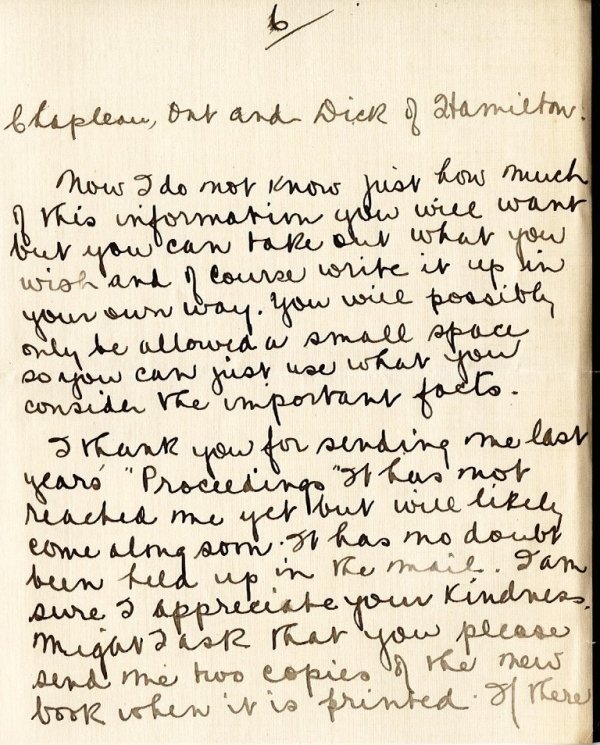 6
Chapleau, Ont and Dick of Hamilton.
Now I do not know just how much
of this information you will want
but you can take out what you
wish and of course write it up in
your own way. You will possibly
only be allowed a small space
so you can just use what you
consider the important facts.
I thank you for sending me last
years' "Proceedings" It has not
reached me yet but will likely
come along soon. It has no doubt
been held up in the mail. I am
sure I appreciate your kindness.
Might I ask that you please
send me two copies of the new
book when it is printed. If there